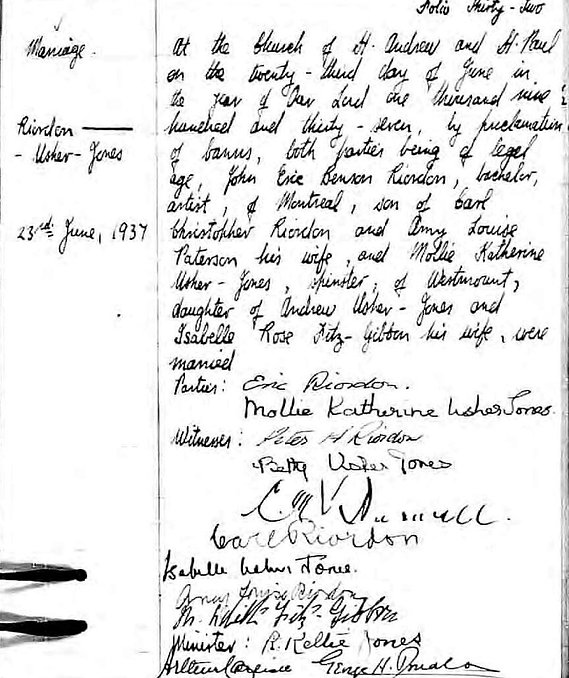 Folio Thirty-Two
Marriage.
Riordon —
- Usher-Jones
23rd June, 1937
At the Church of St. Andrew and St. Paul
on the twenty-third day of June in
the year of Our Lord one thousand nine
hundred and thirty-seven, by proclamation
of banns, both parties being of legal
age, John Eric Benson Riordon, bachelor,
artist, of Montreal, son of Carl
Christopher Riordon and Amy Louise
Paterson his wife, and Mollie Katherine
Usher-Jones, spinster, of Westmount,
daughter of Andrew Usher-Jones and
Isabelle Rose Fitz-Gibbon his wife, were
married
Parties: Eric Riordon.
Mollie Katherine Usher Jones.
Witnesses: Peter H Riordon
Betty Usher Jones
Carl Riordon
Isabelle Usher Jones.
Amy Louise Riordon
Fitz-Gibbon
Minister: R. Kellie Jones
George H. Donald